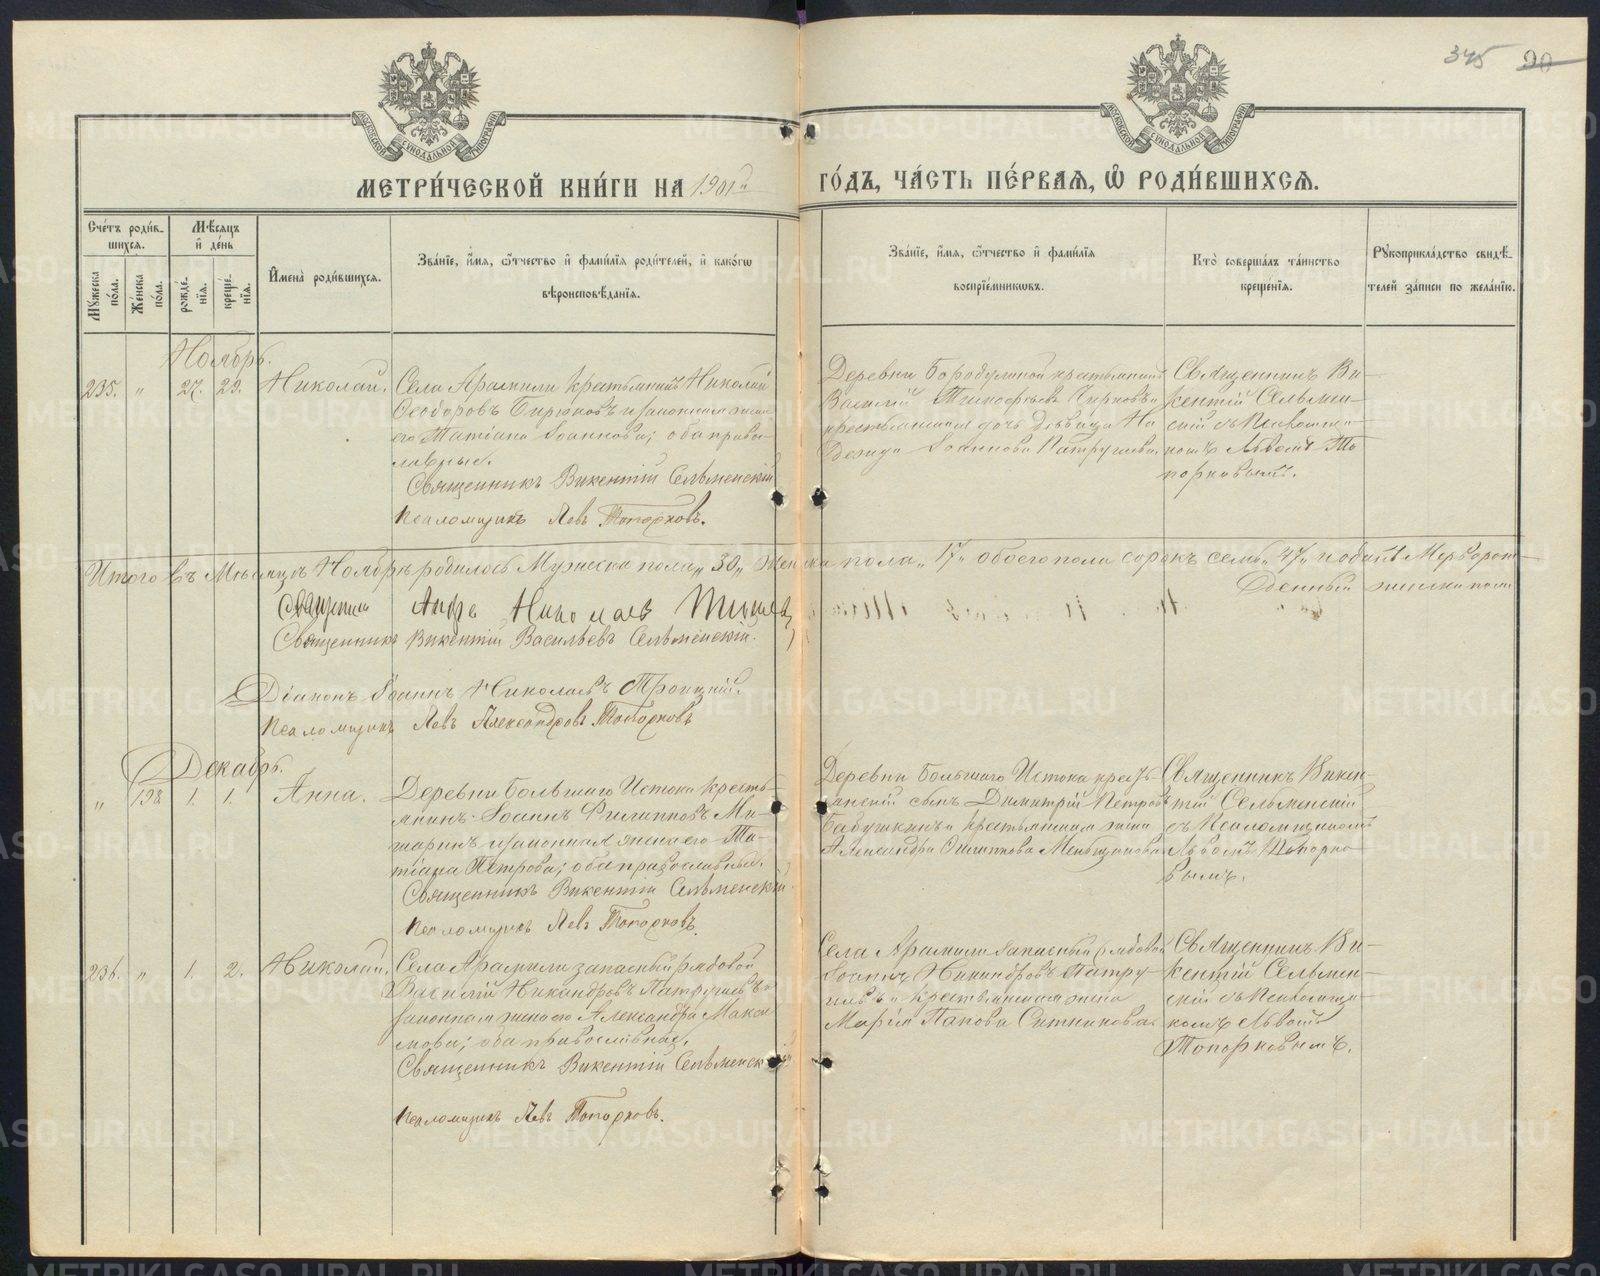 345 20
МОСКОВСКОЙ СУНОДАЛЬНОЙ ТИПОГРАФІИ
МОСКОВСКОЙ СУНОДАЛЬНОЙ ТИПОГРАФІИ
МЕТРИ́ЧЕСКОЙ КНИ́ГИ НА 1901й
ГО́ДЪ, ЧА́СТЬ ПЕ́РВАѦ, Ѡ РОДИ́ВШИХСѦ.
Сче́тъ роди́в-
шихсѧ.
Мꙋжеска по́ла.
Же́нска по́ла.
Мѣ́сѧцъ и де́нь
рожде́-
нїѧ.
креще́-
нїѧ.
Имена̀ роди́вшихсѧ.
Зва́нїе, и́мѧ, ѻ́тчество и фами́лїѧ роди́телей, и како́гѡ
вѣроисповѣ́данїѧ.
Зва́нїе, и́мѧ, ѻ́тчество и фами́лїѧ
воспрїе́мникѡвъ.
Кто̀ соверша́лъ та́инство
креще́нїѧ.
Рꙋкоприкла́дство свидѣ́-
телей за́писи по жела́нїю.
Ноябрь.
235. " 27. 29. Николай.
Села Арамили крестьянинъ Николай
Ѳеодоровъ Бирюковъ и законная жена
его Татіана Іоаннова; оба право-
славные.
Священникъ Викентій Сельменскій
Псаломщикъ Левъ Топорковъ.
Деревни Бородулиной крестьянинъ
Василій Тимофѣевъ Чирковъ и
крестьянская дочь дѣвица На
дежда Іоаннова Патрушева.
Священникъ Ви-
кентій Сельмен-
скій съ Псаломщи-
комъ Львомъ То
порковымъ.
Итого въ Мѣсяцѣ Ноябрѣ родилось Мужеска пола „30„ Женска пола „17„ обоего пола сорокъ семь „47„
женска пола
Священникъ
Священникъ Викентій Васильевъ Сельменскій.
Діаконъ Іоаннъ Николаевъ Троицкій.
Псаломщикъ Левъ Александровъ Топорковъ
Декабрь.
" 198 1. 1. Анна.
Деревни Большаго Истока кресть-
янинъ Іоаннъ Филипповъ Ми-
шаринъ и законная жена его Та-
тіана Петрова; оба православные.
Священникъ Викентій Сельменскій
Псаломщикъ Левъ Топорковъ.
Деревни Большаго Истока кресть-
янскій сынъ Димитрій Петровъ
Бабушкинъ и крестьянская жена
Александра Меньщикова.
Священникъ Викен-
тій Сельменскій
съ Псаломщикомъ
Львомъ Топорко-
вымъ.
236. " 1. 2. Николай.
Села Арамили запасный рядовой
Василій Никандровъ Патрушевъ и
законная жена его Александра Макси
мова; оба православные.
Священникъ Викентій Сельменскій
Псаломщикъ Левъ Топорковъ.
Села Арамили запасный рядовой
Іоаннъ Никандровъ Патру-
шевъ и крестьянская жена
Марія Ситникова.
Священникъ Ви-
кентій Сельмен-
скій съ Псаломщи-
комъ Львомъ
Топорковымъ.
METRIKI.GASO-URAL.RU